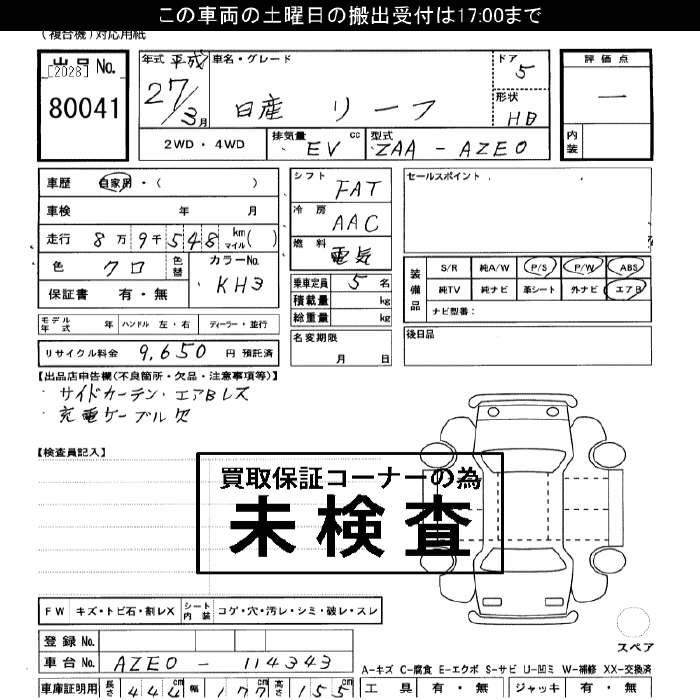 この車両の土曜日の搬出受付は17:00まで
(複合機)対応用紙
出品No. [2028] 80041
年式 平成 27/3月
車名・グレード 日産 リーフ
ドア 5
形状 HB
評価点 ―
内装
2WD・4WD 排気量 EV cc 型式 ZAA - AZE0
車歴 自家用・( )
車検 年 月
走行 8万9千548 km マイル( )
色 クロ 色替 カラーNo. KH3
保証書 有・無
シフト FAT
冷房 AAC
燃料 電気
乗車定員 5 名
積載量 kg
総重量 kg
セールスポイント
装備品 S/R 純A/W P/S P/W ABS
純TV 純ナビ 革シート 外ナビ エアB
ナビ型番:
モデル年式 年 ハンドル 左・右 ディーラー・並行
名変期限 月 日
後日品
リサイクル料金 9,650 円 預託済
【出品店申告欄(不良箇所・欠品・注意事項等)】
・サイドカーテン・エアBレス
・充電ケーブル欠
【検査員記入】
買取保証コーナーの為
未検査
FW キズ・トビ石・割レX シート内装 コゲ・穴・汚レ・シミ・破レ・スレ
スペア
登録No.
車台No. AZE0 - 114343
A-キズ C-腐食 E-エクボ S-サビ U-凹ミ W-補修 XX-交換済
車庫証明用 長さ 444cm 幅 177cm 高さ 155cm
工具 有・無 ジャッキ 有・無